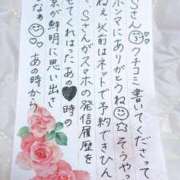 Sさん クチコミ書いて、ださって
ホンマにありがとうね そうやっ
ねぇ以前はネットで予約できひん
Sさんがスマホの発信履歴を
せてくれはったあの♥時の
景が鮮明に思い出さ
なぁ あの時から